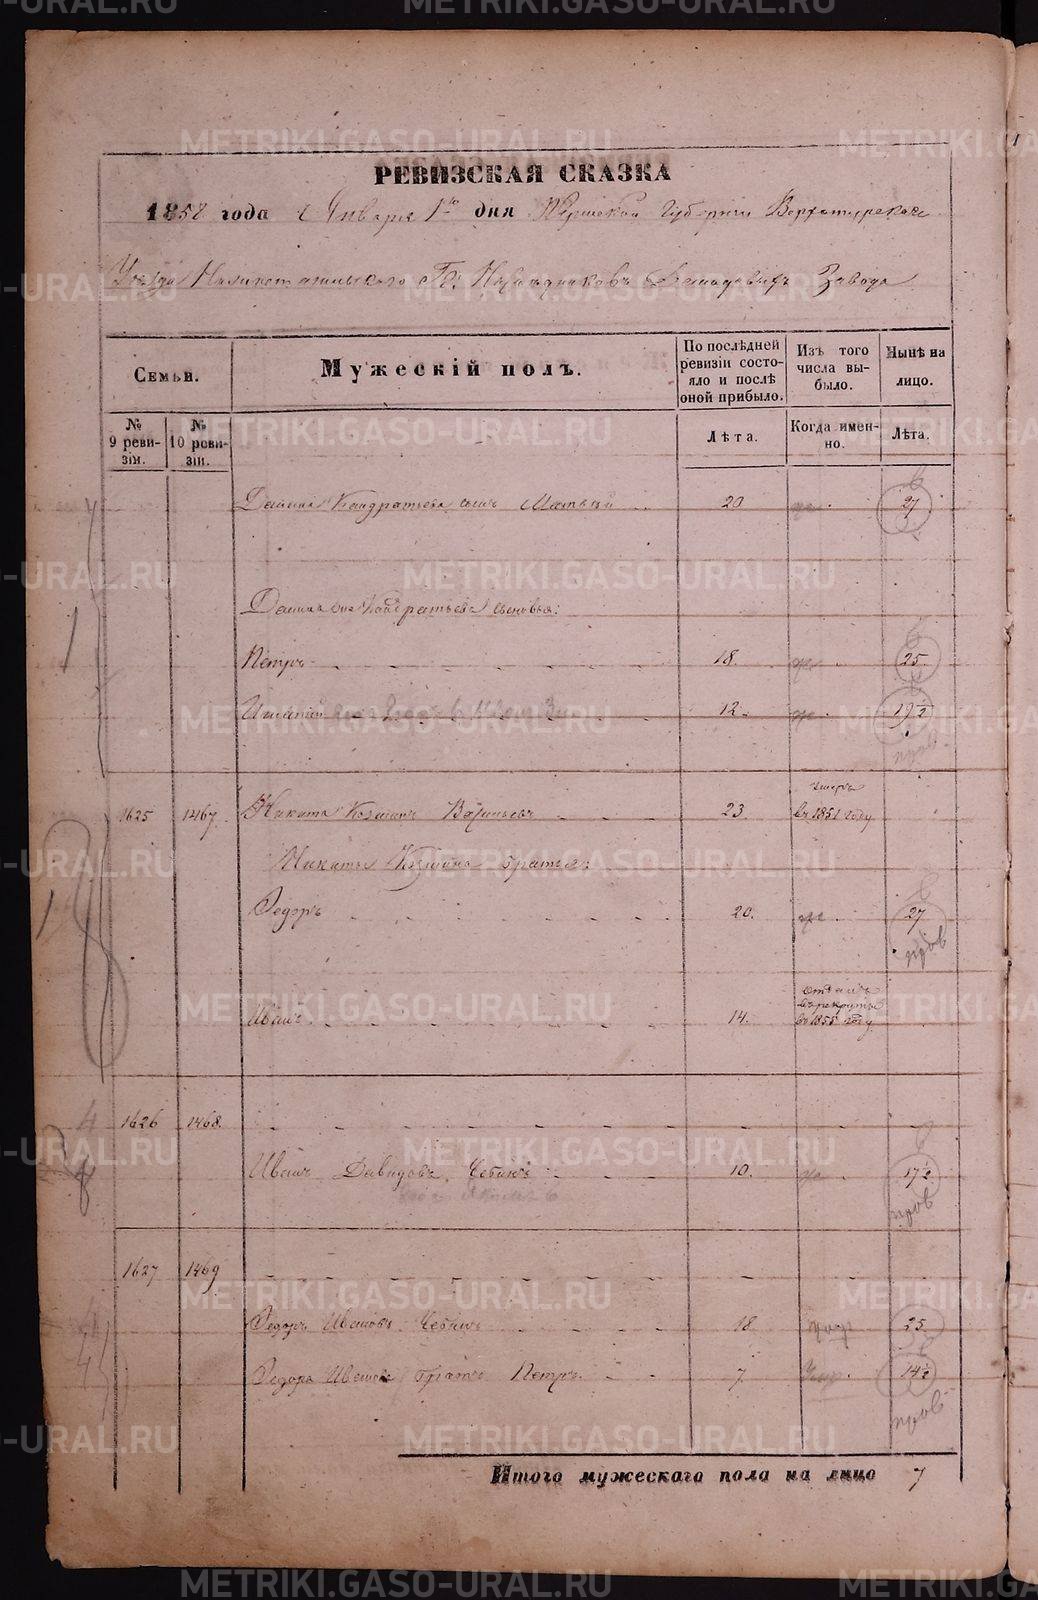 РЕВИЗСКАЯ СКАЗКА
1858 года Января 1го дня Пермской Губернии Верхотурскаго
Уезда Завода
Семьи.
Мужескій полъ.
По послѣдней ревизіи состояло и послѣ оной прибыло.
Изъ того числа выбыло.
Нынѣ на лицо.
№ 9 ревизіи.
№ 10 ревизіи.
Лѣта.
Когда именно.
Лѣта.
Кандратьева сынъ Матвей 20 27
Кандратьева сыновья:
Петръ 18. 25
Игнатий 12. 19½
1625 1467. Никита Козминъ Васильевъ 23. умеръ въ 1851 году
Никиты Козмина братья:
Федоръ 20. 27
пров
Иванъ 14. отданъ въ рекруты въ 1855 году
1626 1468.
Иванъ Давидовъ Чебинъ 10. 17½
пров
1627 1469
Федоръ Ивановъ Чебинъ 18 25
Федора Иванова братъ Петръ 7 14½
пров
Итого мужескаго пола на лицо 7
METRIKI.GASO-URAL.RU